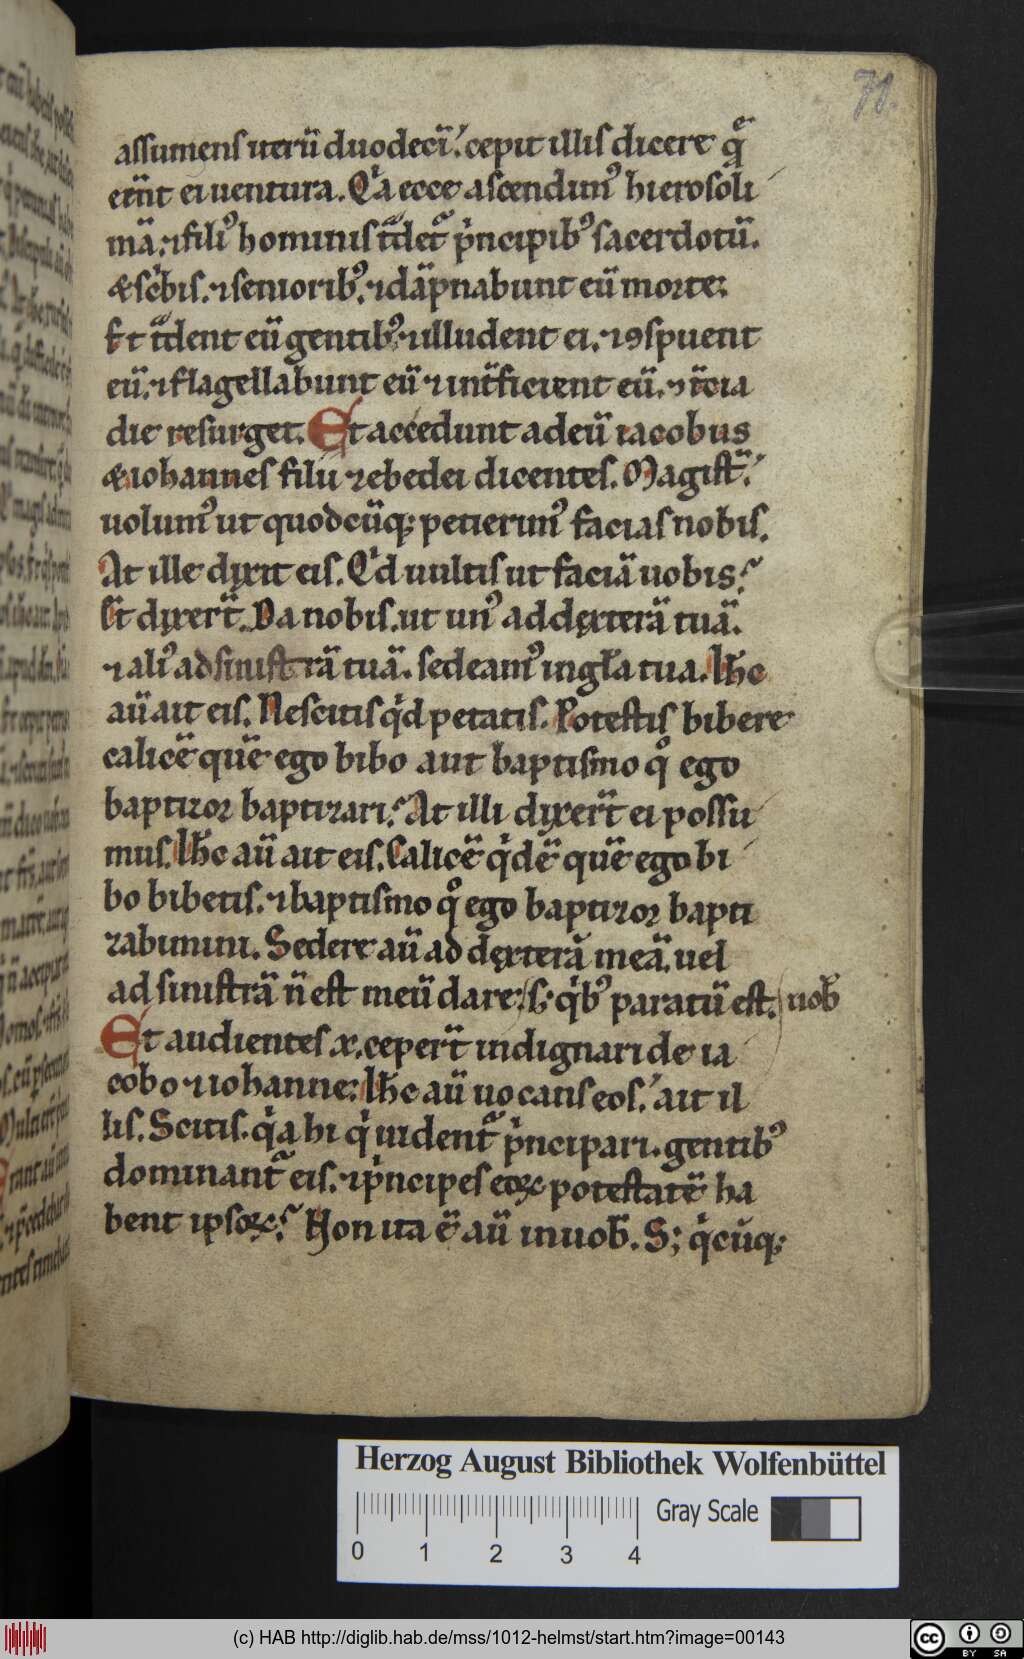 71.
assumens iterū duodecī. cepit illis dicere q̄
erāt ei uentura. Qͥa ecce ascendimꝰ hierosoli
mā. ⁊ filiꝰ hominis tͣdetᷓ pͥncipibꝰ sacerdotū.
& scͥbis. ⁊ senioribꝰ. ⁊ dāpnabunt eū morte.
Et tͣdent eū gentibꝰ. ⁊ illudent ei. ⁊ ꝯspuent
eū. ⁊ flagellabunt eū ⁊ int̄ficient eū. ⁊ t̄cia
die resurget. Et accedunt ad eū iacobus
& iohannes filii zebedei dicentes. Magist̄.
uolumꝰ ut quodcūq; petierimꝰ facias nobis.
At ille dixit eis. Qͥd uultis ut faciā uobis?
Et dixer̄t. Da nobis. ut unꝰ ad dexterā tuā.
⁊ aliꝰ ad sinistrā tuā. sedeamꝰ in gl̄a tua. Ih̄c
aū ait eis. Nescitis qͥd petatis. Potestis bibere
calicē quē ego bibo aut baptismo qͦ ego
baptizor baptizari? At illi dixer̄t ei possu
mus. Ih̄c aū ait eis. Calicē qͥdē quē ego bi
bo bibetis. ⁊ baptismo qͦ ego baptizor bapti
zabimini. Sedere aū ad dexterā meā. uel
ad sinistrā n̄ est meū dare. s; qͥbꝰ paratū est. uob̄
Et audientes .x. ceper̄t indignari de ia
cobo ⁊ iohanne. Ih̄c aū uocans eos. ait il
lis. Scitis. qͥa hi qͥ uidentᷓ pͥncipari. gentibꝰ
dominantᷓ eis. ⁊ pͥncipes eoꝝ potestatē ha
bent ipsoꝝ? Non ita ē aū in uob̄. S; qͥcūq;
Herzog August Bibliothek Wolfenbüttel
Gray Scale
0 1 2 3 4
(c) HAB http://diglib.hab.de/mss/1012-helmst/start.htm?image=00143
cc BY SA